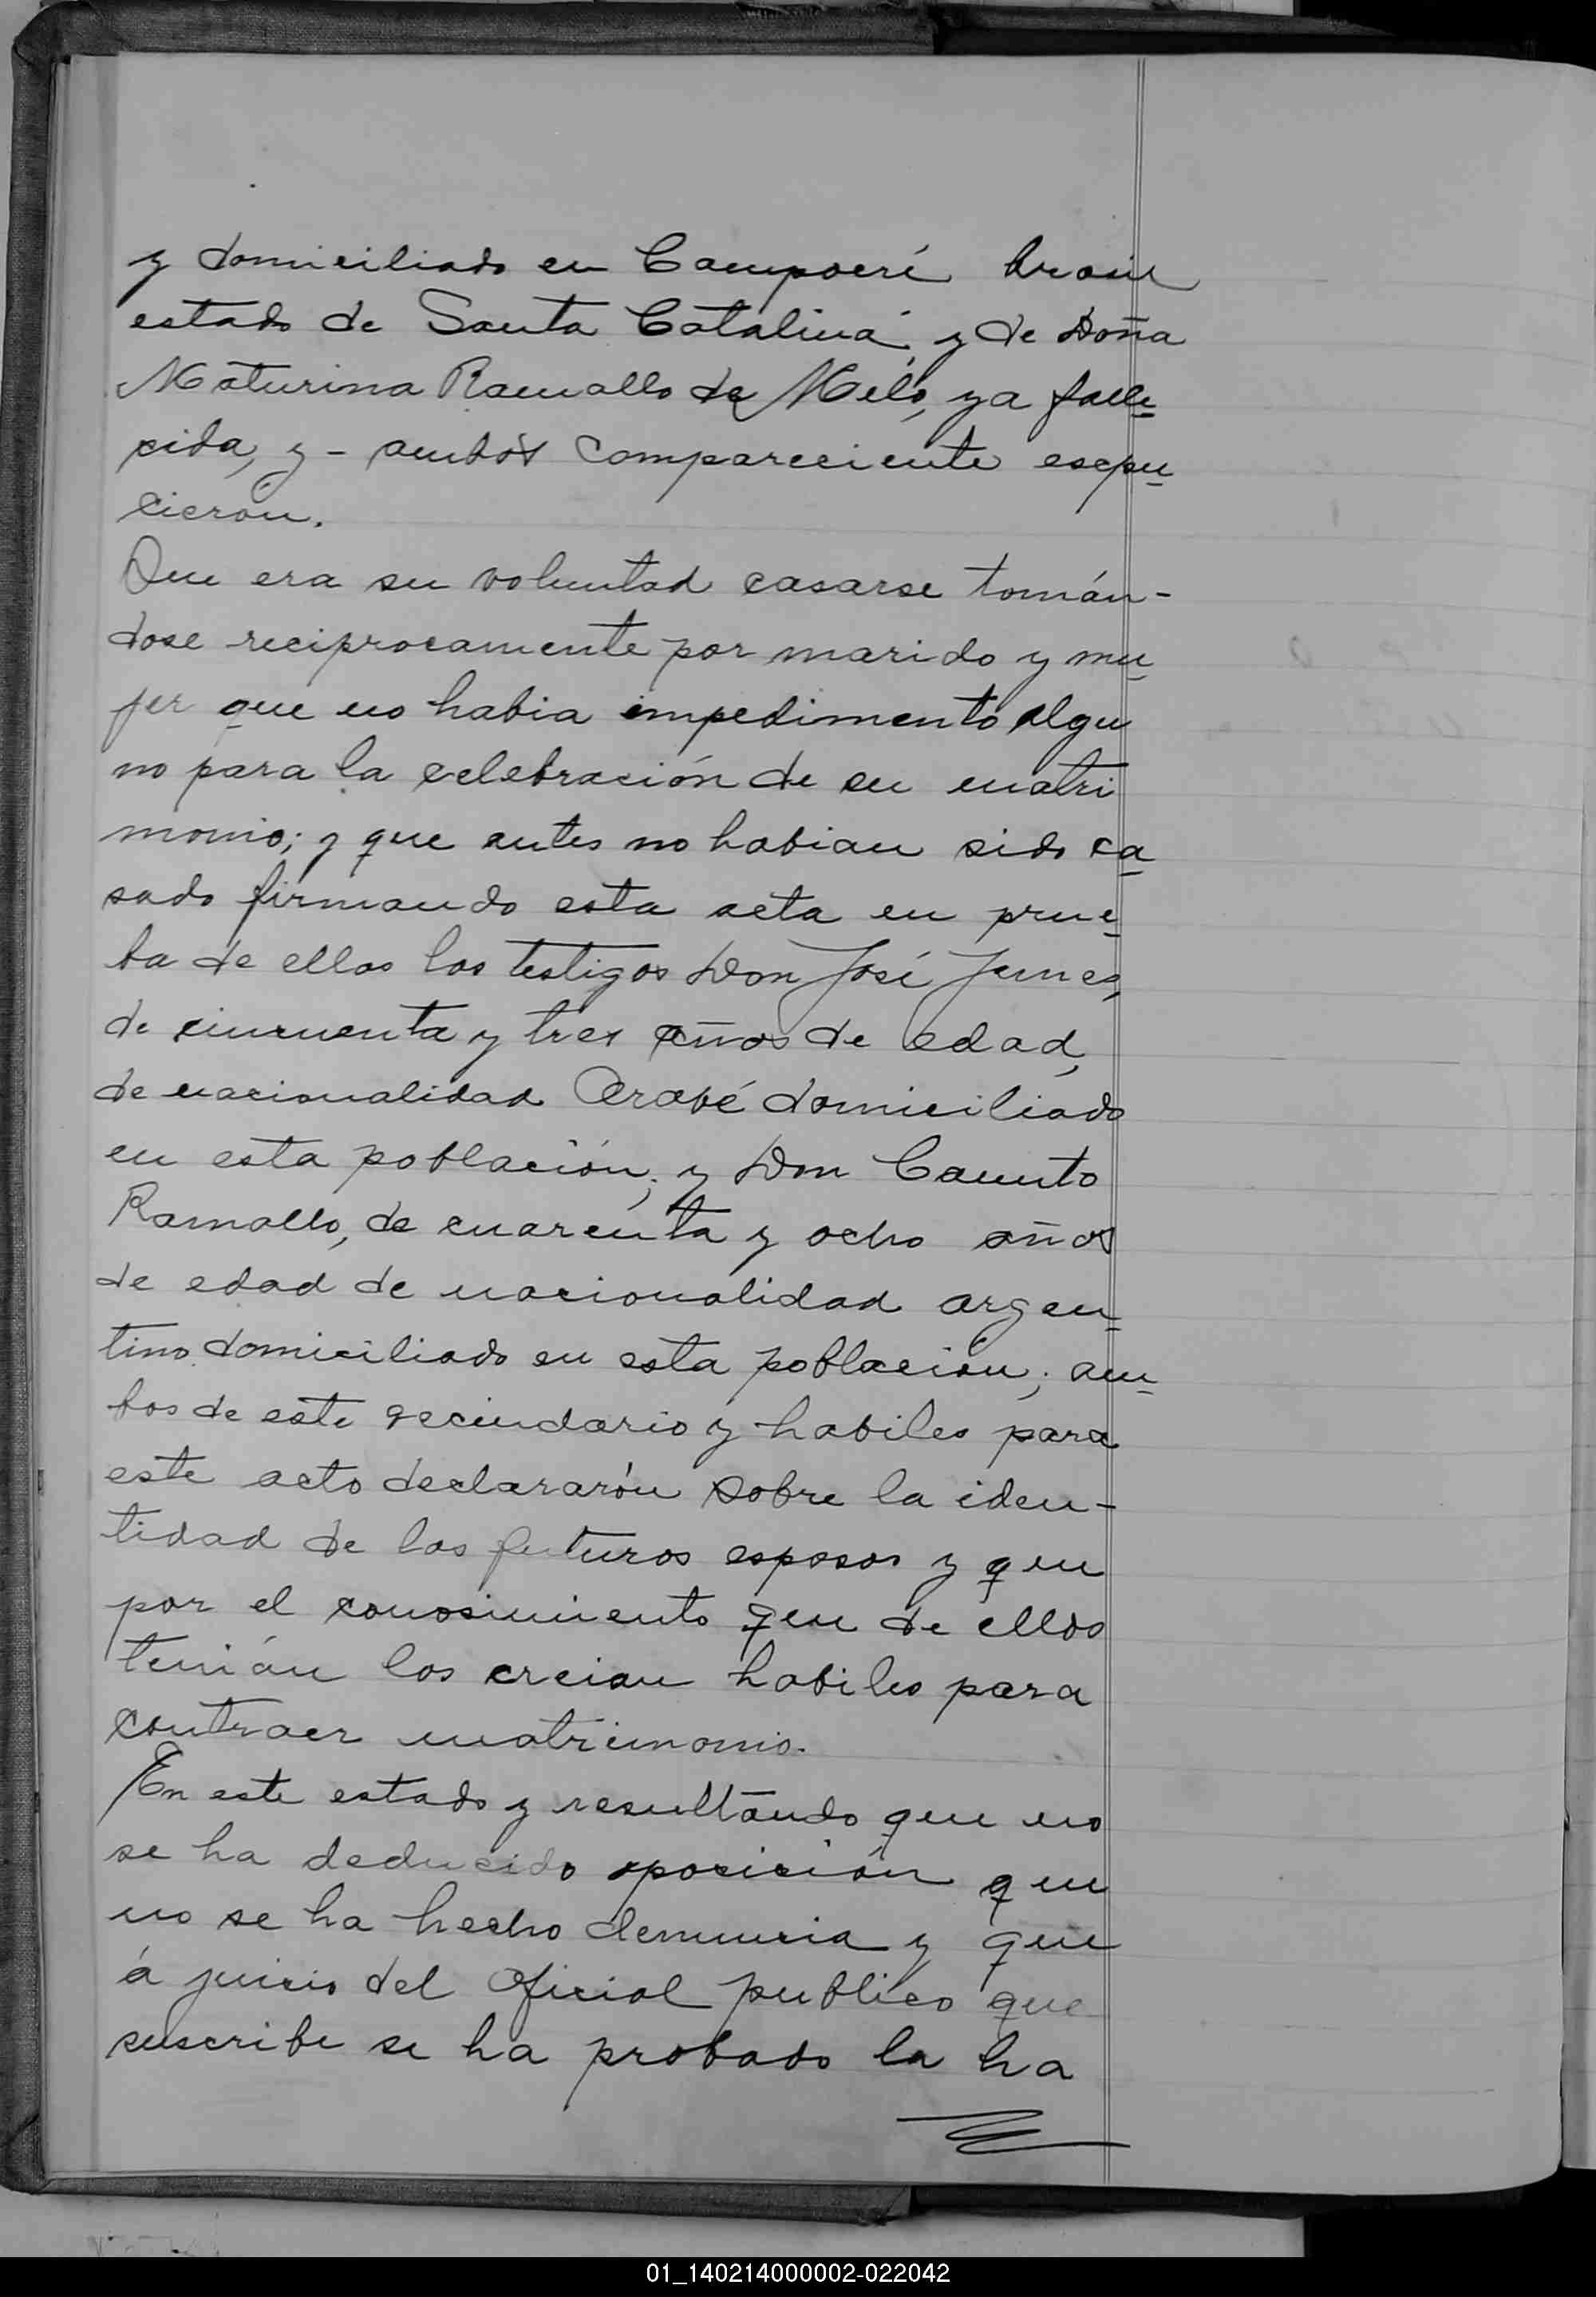 y domiciliado en Campoeré brasil
estado de Santa Catalina, y de Doña
Maturina Ramallo de Melo, ya falle
cida, y - ambos compareciente escpu
cieron.
Que era su voluntad casarse tomán-
dose reciprocamente por marido y mu
jer que no habia impedimento algu
no para la celebración de su matri
monio; y que antes no habian sido ca
sado firmando esta acta en prue
ba de ellas los testigos Don José
de cincuenta y tres años de edad,
de nacionalidad Arabé domiciliado
en esta población; y Don
Ramallo, de cuarenta y ocho años
de edad de nacionalidad argen
tino domiciliado en esta población; am
bos de este vecindario y habiles para
este acto declararón sobre la iden-
tidad de los futuros esposos y que
por el conosimiento que de ellos
tenián los creian habiles para
contraer matrimonio.
En este estado y resultando que no
se ha deducido oposición que
no se ha hecho denuncia y que
á juicio del Oficial publico que
suscribe se ha probado la ha
01_140214000002-022042